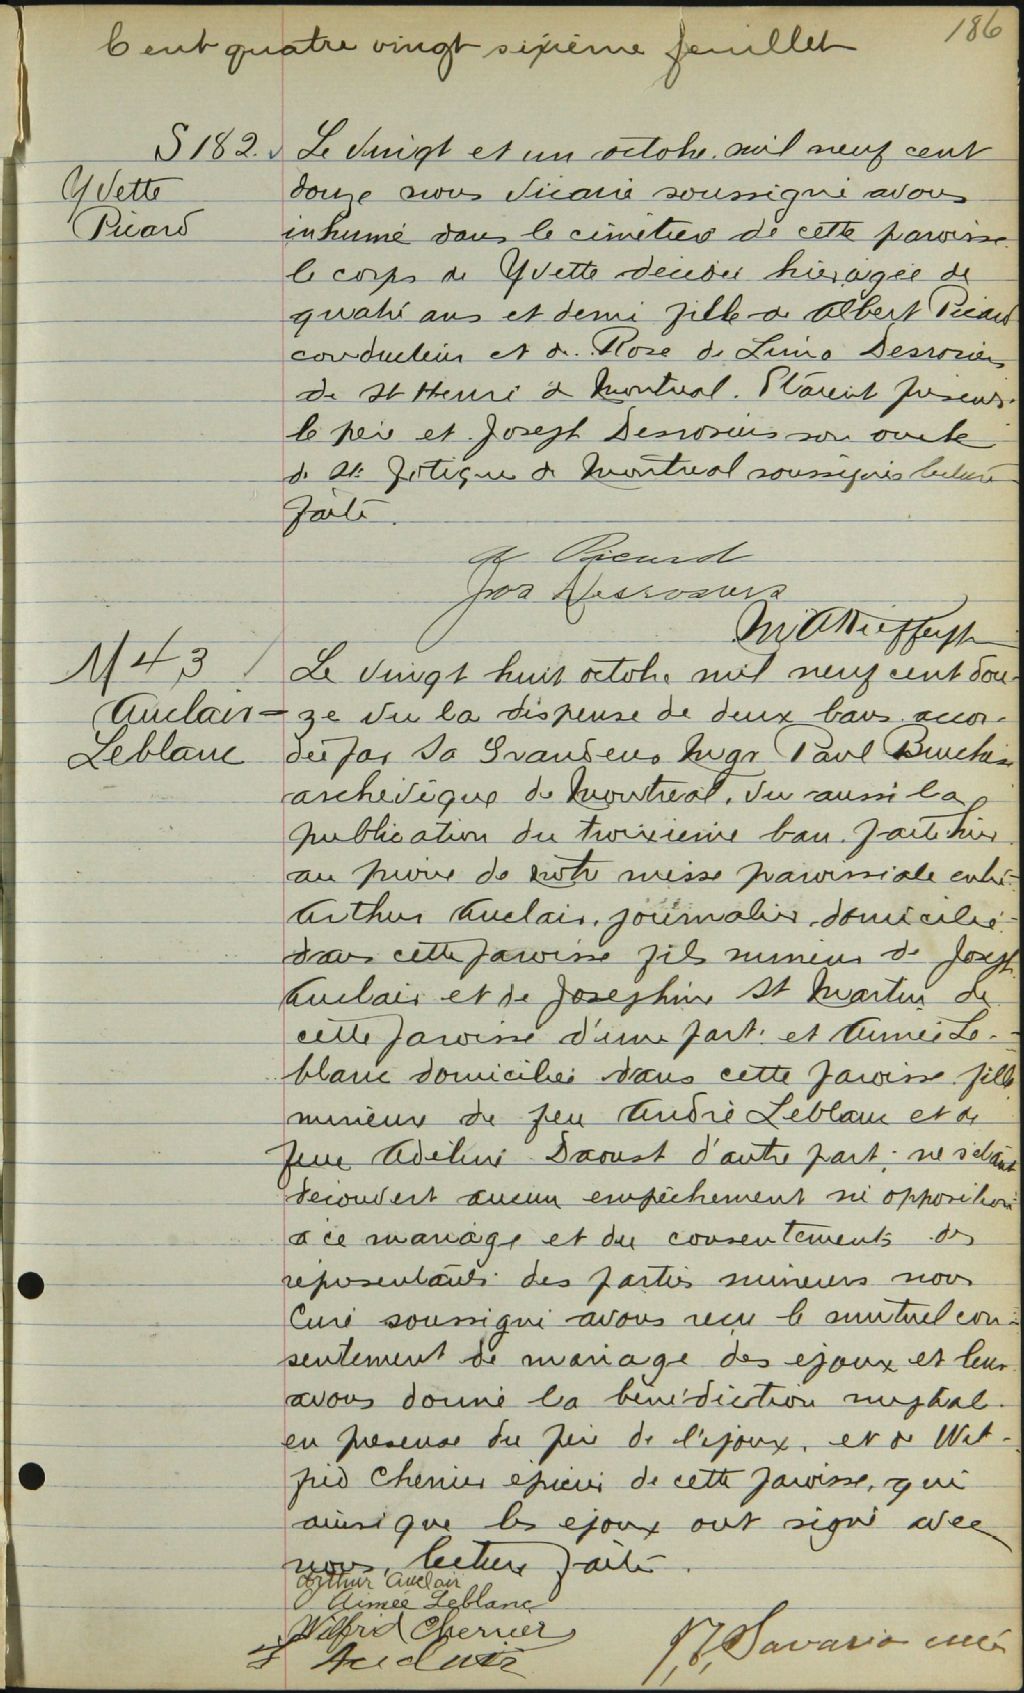 186
Cent quatre vingt sixième feuillet
S 182.
Yvette
Picard
Le vingt et un octobre mil neuf cent
douze nous vicaire soussigné avons
inhumé dans le cimetière de cette paroisse
le corps de Yvette décédée hier, agée de
quatre ans et demi fille de Albert Picard
conducteur et de Rose de Lima Desrosiers
de St Henri de Montreal. Etaient présents
le père et Joseph Desrosiers son oncle
de St de Montreal soussignés lecture
faite.
A Picard
Jos Desrosiers
M 43
Auclair-
Leblanc
Le vingt huit octobre mil neuf cent dou-
ze vu la dispense de deux bans accor-
dée par Sa Grandeur Mgr Paul Bruchési
archevêque de Montreal, vu aussi la
publication du troisième ban faite hier
au prône de notre messe paroissiale entre
Arthur Auclair, journalier domicilié
dans cette paroisse fils mineur de Joseph
Auclair et de Josephine St Martin de
cette paroisse d'une part: et Aimée Le-
blanc domiciliée dans cette paroisse fille
mineure de feu André Leblanc et de
feue Adeline Daoust d'autre part; ne s'étant
découvert aucun empêchement ni opposition
à ce mariage et du consentement des
représentants des parties mineurs nous
Curé soussigné avons reçu le mutuel con-
sentement de mariage des epoux et leur
avons donné la bénédiction nuptiale
en présence du père de l'epoux, et de Wil-
frid Cherrier épicier de cette paroisse, qui
ainsi que les epoux ont signé avec
nous, lecture faite.
Arthur Auclair
Aimée Leblanc
Wilfrid Cherrier
J Auclair
Savaria curé